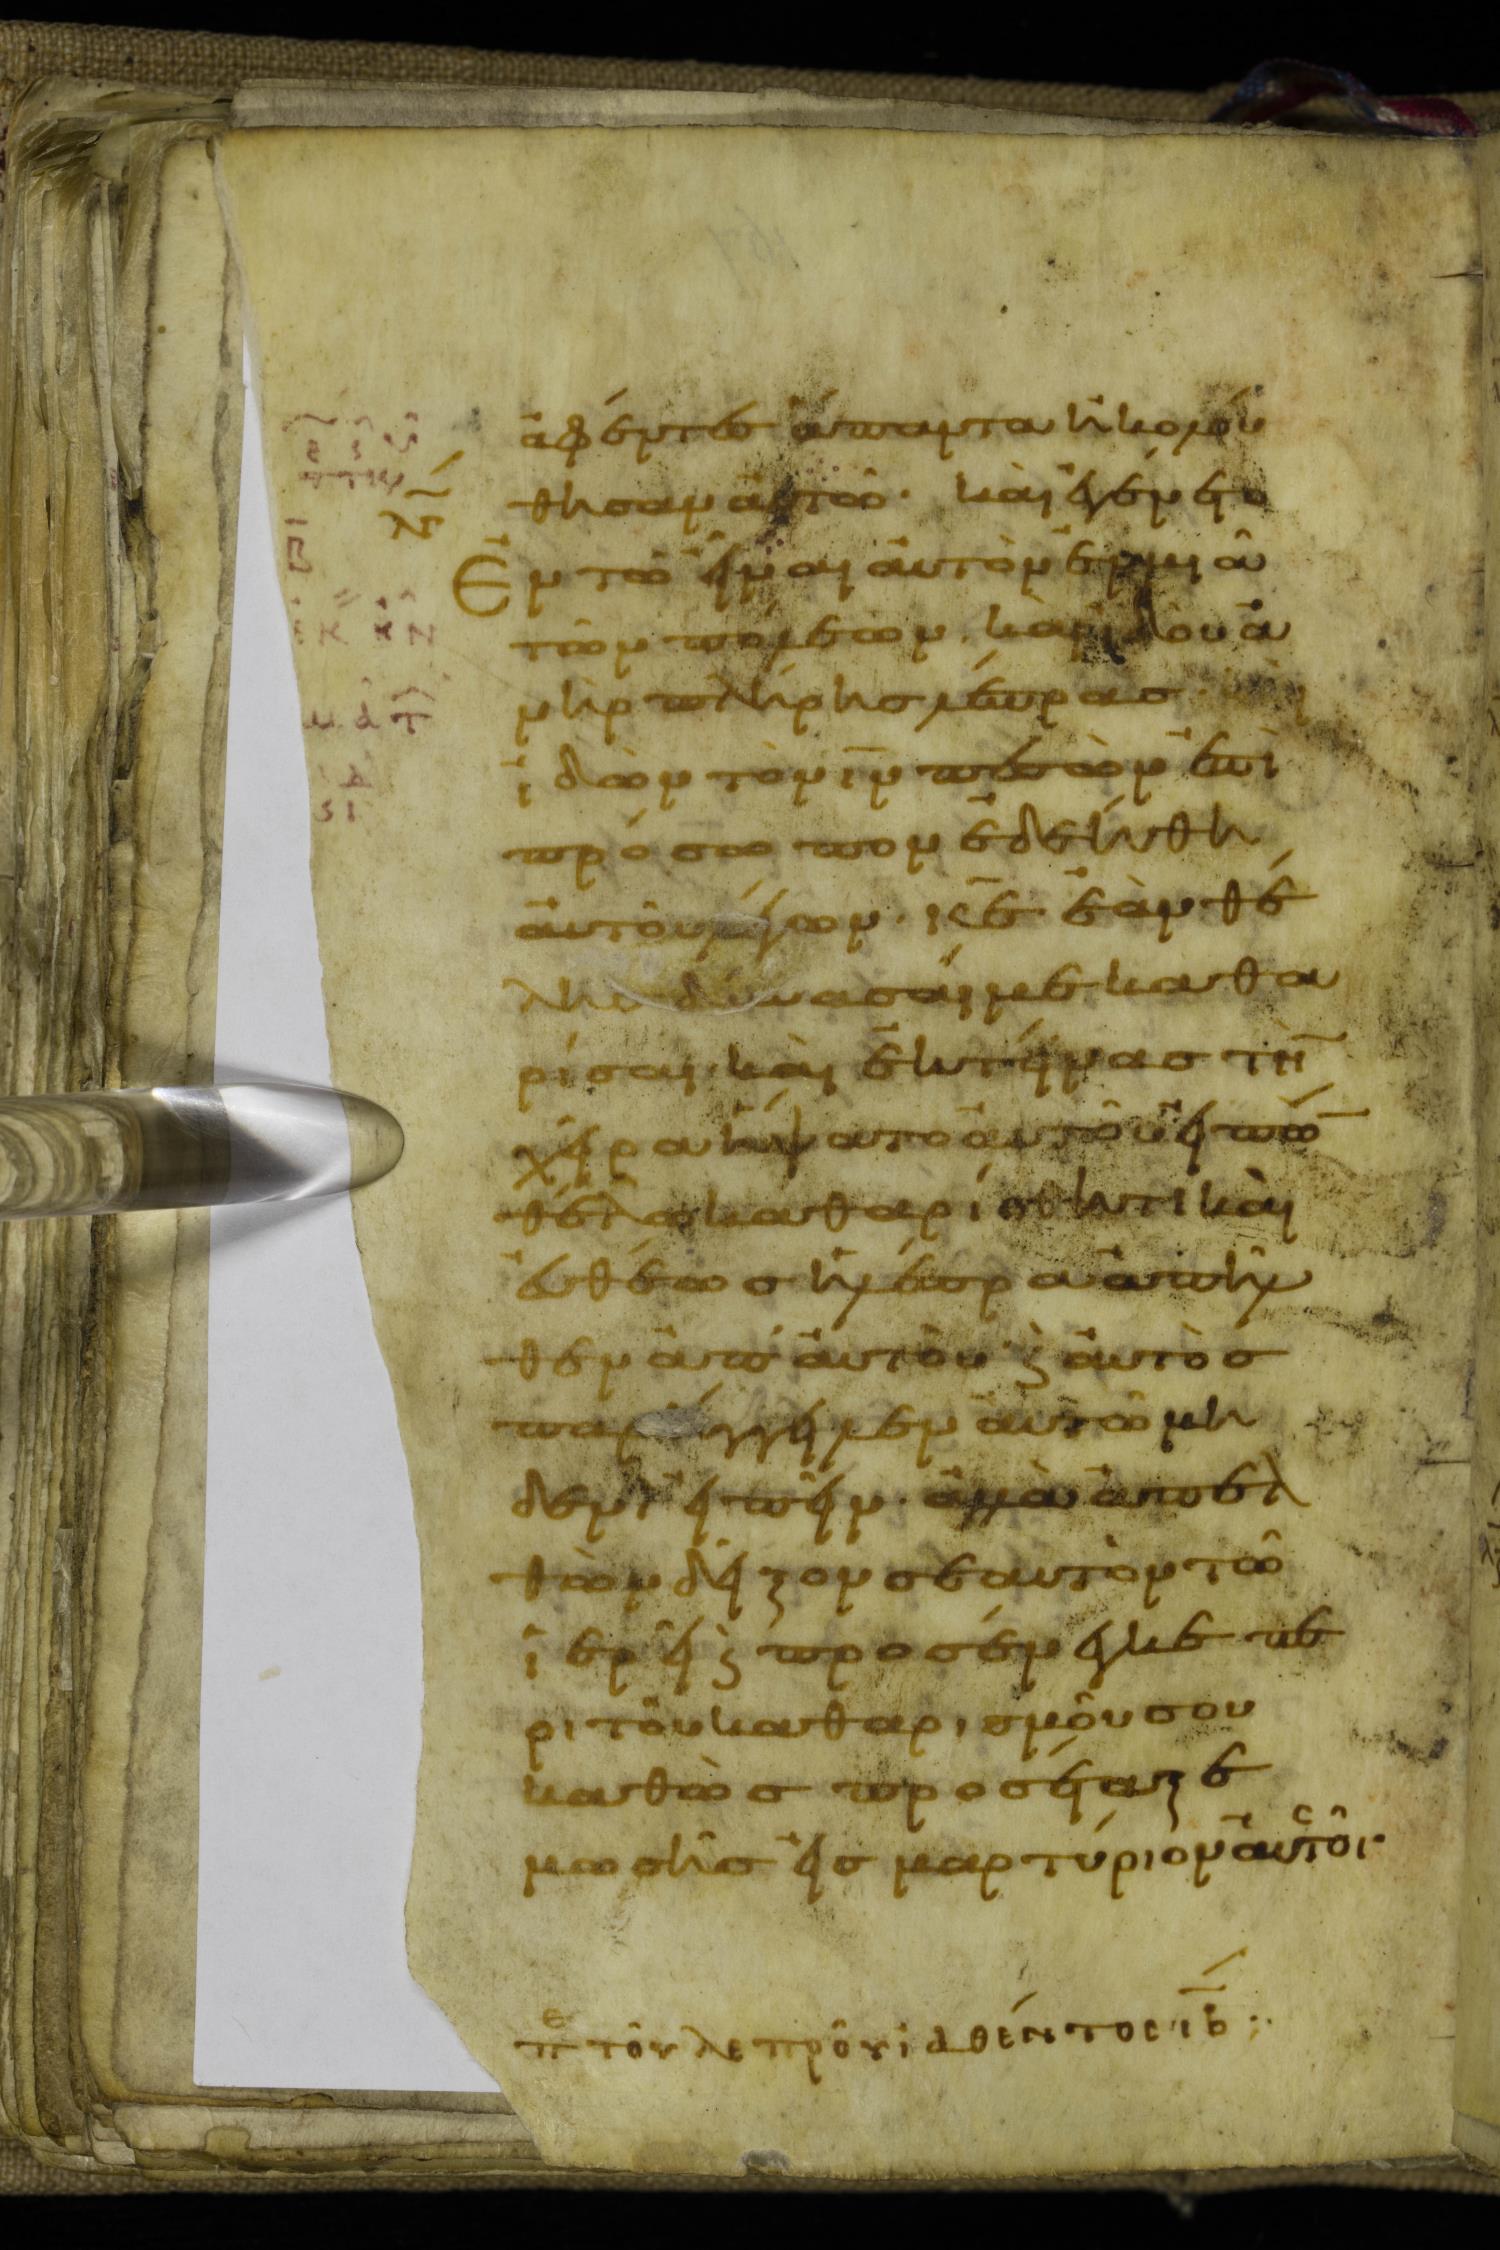 ἀφέντες ἅπαντα ἠκολού
θησαν αὐτῶ· καὶ ἐγένετο
λγ
Ἐν τῶ εἶναι αὐτὸν ἐν μιᾶ
τῶν πόλεων. καὶ ἰδοὺ ἀ
νὴρ πλήρης λέπρας·
ἰδὼν τὸν ιν πεσὼν ἐπὶ
πρόσωπον ἐδεήθη
αὐτοῦ λέγων· κε ἐὰν θέ
λης δύνασαί με καθα
ρίσαι· καὶ ἐκτείνας τὴν
χεῖρα ἥψατο αὐτοῦ εἰπών
θέλω καθαρίσθητι καὶ
εὐθέως ἡ λέπρα ἀπῆλ
θεν ἀπ' αὐτοῦ· ϗ αὐτὸς
παρήγγειλεν αὐτῶ μη
δενὶ εἰπεῖν· ἀλλὰ ἀπελ
θὼν δεῖξον σεαυτὸν τῶ
ἱερεῖ ϗ προσένεγκε πε
ρι τοῦ καθαρισμοῦ σου
καθὼς προσέταξε
μωσῆς εἰς μαρτύριον αὐτοῖς·
β
πε τοῦ λεπροῦ ἰαθέντος ιβ :·